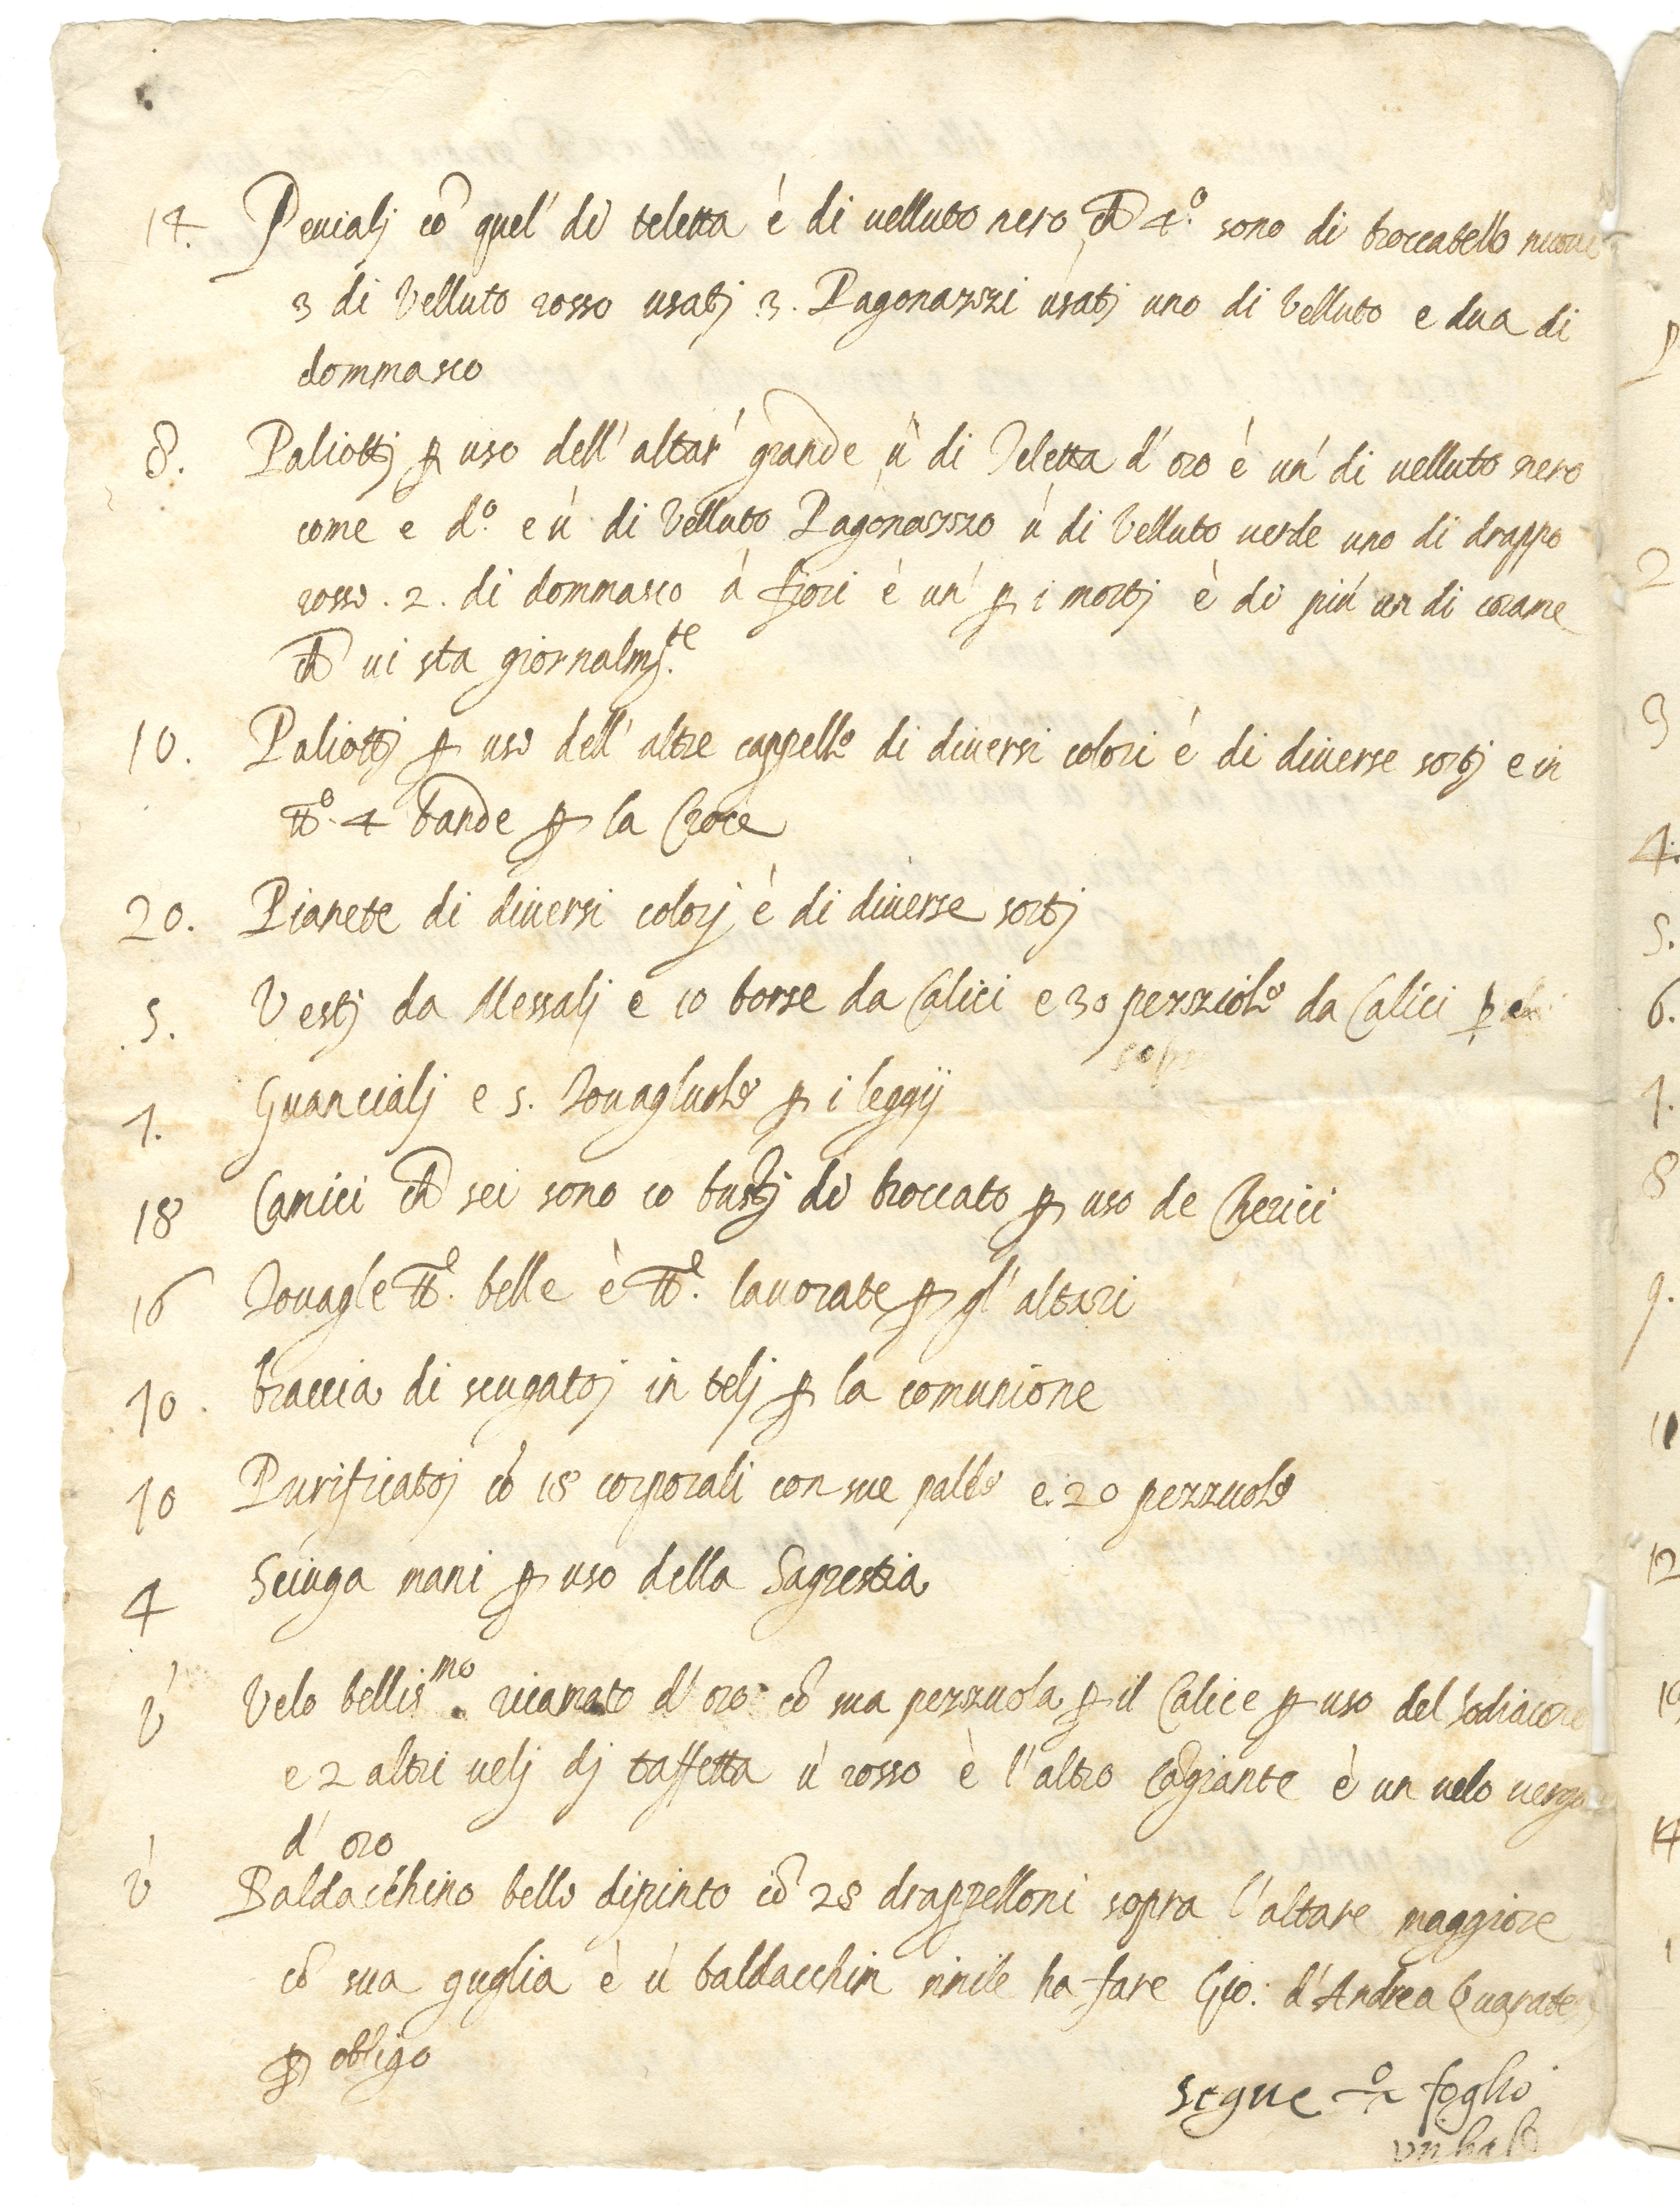 14. Peuialj cō quel' di teletta è di uelluto nero ch 4.º sono di broccatello nuoui
3 di Velluto rosso usatj 3. Pagonazzi usatj uno di Velluto e dua di
dommasco
8. Paliottj ꝑ uso dell' altar' grande ū di Teletta d'oro è un' di uelluto nero
come e d.º e ū di Velluto Pagonazzo ū di Velluto uerde uno di drappo
rosso . 2 . di dommasco à fiori è un' ꝑ i mortj è di più un di corame
ch ui sta giornalm.te
10. Paliottj ꝑ uso dell' altre cappelle di diuersi colori è di diuerse sortj e in
4 bande ꝑ la Croce
20. Pianete di diuersi colorj è di diuerse sortj
5. Vestj da Messalj e 10 borse da Calici e 30 pezziole da Calici ꝑ
7. Guancialj e 5. Touagluole ꝑ i leggij
18 Camici ch sei sono co bustj di broccato ꝑ uso de Cherici
16 Touagle belle è lauorate ꝑ gl' altari
10. braccia di sciugatoj in telj ꝑ la comunione
10 Purificatoj cō 18 corporali con sue palle e. 20 pezzuole
4 Sciuga mani ꝑ uso della Sagrestia
ū Velo bellis.mo ricamato d'oro cō sua pezzuola ꝑ il Calice ꝑ uso del Sodiacono
e 2 altri uelj dj taffetta ū rosso è l'altro Cāgiante è un uelo uerga
d' oro
ū Baldacchino bello dipinto cō 28 drappelloni sopra l'altare maggiore
cō sua guglia è ū baldacchin simile ha fare Gio: d'Andrea Quarate
ꝑ obligo
segue foglio